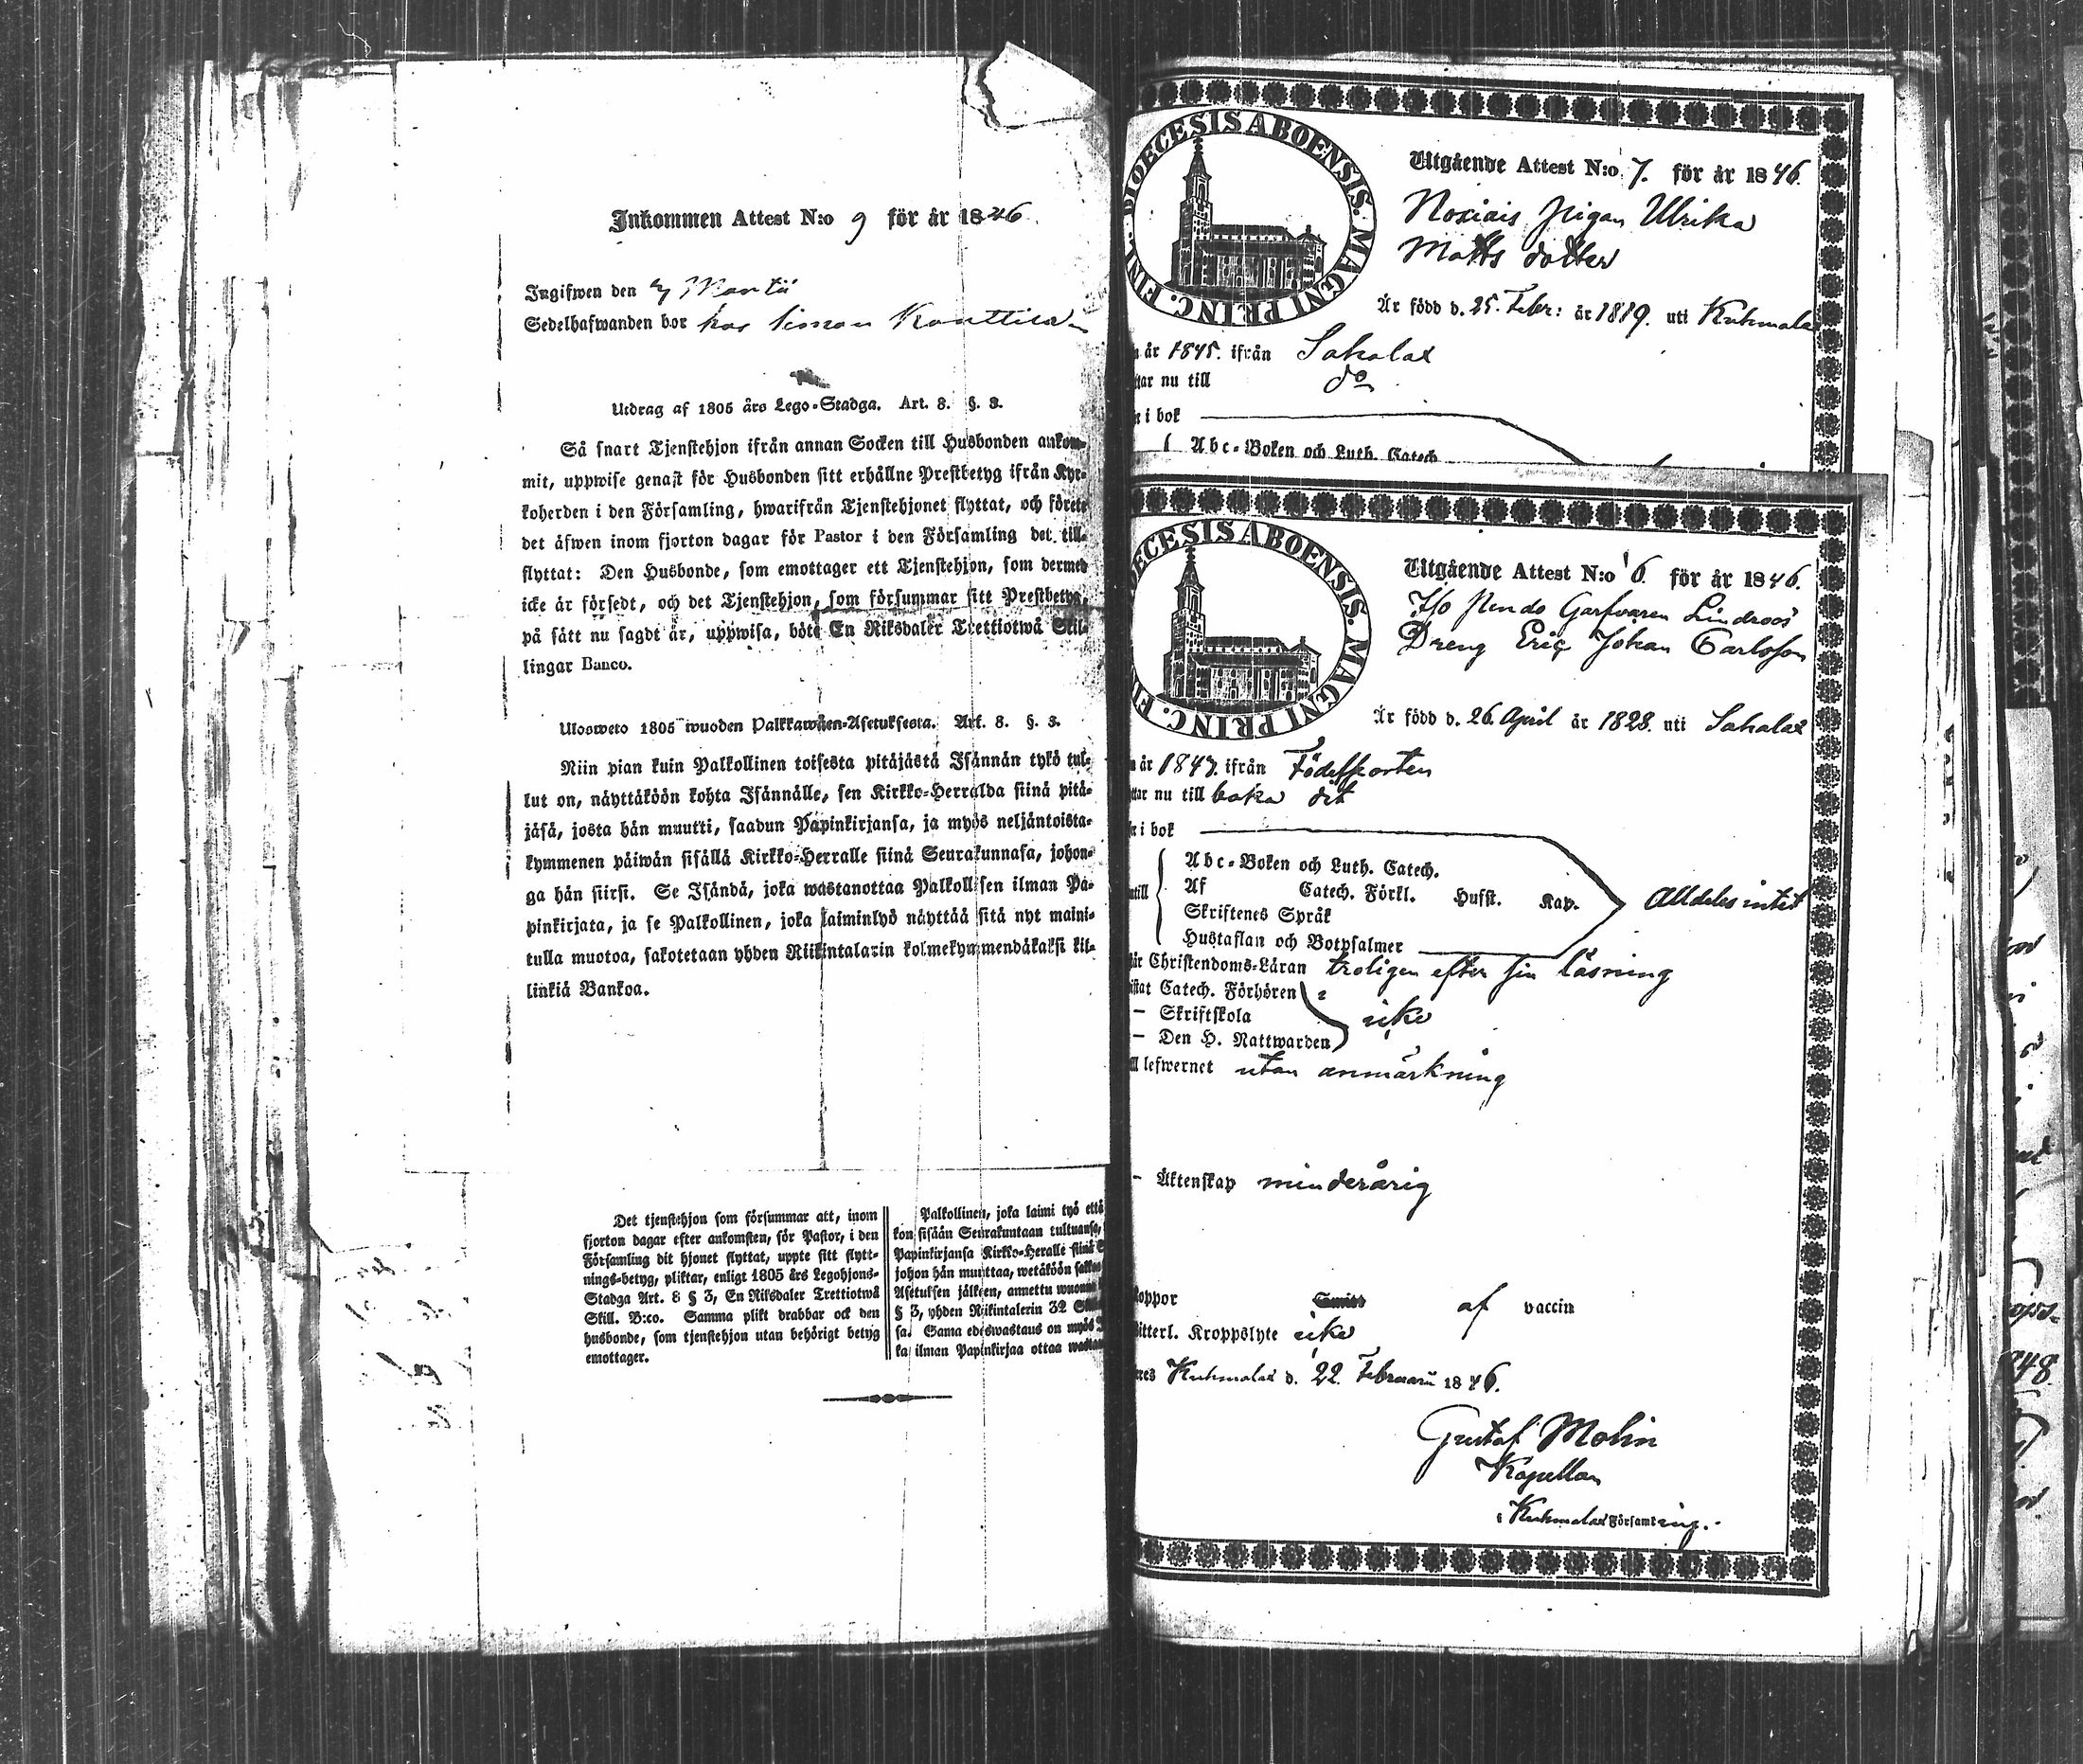 Inkommen Attest N:o 9 för år 1846
Ingifwen den Martii
Sedelhafwanden bor hos Simon
Utdrag af 1805 års Lego-Stadga. Art. 8. §. 3.
Så snart Tjenstehjon ifrån annan Socken till Husbonden ankom-
mit, uppwise genast för Husbonden sitt erhållne Prestbetyg ifrån Kyr-
koherden i den Församling, hwarifrån Tjenstehjonet flyttat, och förete
det äfwen inom fjorton dagar för Pastor i den Församling det till-
flyttat: Den Husbonde, som emottager ett Tjenstehjon, som dermed
icke är försedt, och det Tjenstehjon, som försummar sitt Prestbetyg,
på sätt nu sagdt är, uppwisa, böte En Riksdaler Trettiotwå Skil-
lingar Banco.
Ulosweto 1805 wuoden Palkkawäen-Asetuksesta. Art. 8. §. 3.
Niin pian kuin Palkollinen toisesta pitäjästä Isännän tykö tul-
lut on, näyttäköön kohta Isännälle, sen Kirkko-Herralda siinä pitä-
jäsä, josta hän muutti, saadun Papinkirjansa, ja myös neljäntoista-
kymmenen päiwän sisällä Kirkko-Herralle siinä Seurakunnasa, johon-
ga hän siirsi. Se Isändä, joka wastanottaa Palkollisen ilman Pa-
pinkirjata, ja se Palkollinen, joka laiminlyö näyttää sitä nyt maini-
tulla muotoa, sakotetaan yhden Riikintalarin kolmekymmendäkaksi kil-
linkiä Bankoa.
Det tjenstehjon som försummar att, inom
fjorton dagar efter ankomsten, för Pastor, i den
Församling dit hjonet flyttat, uppte sitt flytt-
nings-betyg, pliktar, enligt 1805 års Legohjons-
Stadga Art. 8 § 3, En Riksdaler Trettiotwå
Skill. B:co. Samma plikt drabbar ock den
husbonde, som tjenstehjon utan behörigt betyg
emottager.
Palkollinen, joka laimi työ että
kon sisään Seurakuntaan tultuansa,
Papinkirjansa Kirkko-Heralle siinä S
johon hän muuttaa, wetäköön sakkoa
Asetuksen jälkeen, annettu wuonna
§ 3, yhden Rikintalerin 32 Skil
sa. Sama edeswastaus on myös
ka ilman Papinkirjaa ottaa wastaan
DIOECESIS ABOENSIS. MAGNI PRINC. FINL.
Utgående Attest N:o 7. för år 1846.
pigan Ulrika
Matts dotter
Är född d. 25. Febr: år 1819. uti Kuhmalax
n år 1845. ifrån Sahalax
ttar nu till do
n i bok
Abc-Boken och Luth. Catech
OECESIS ABOENSIS. MAGNI PRINC. FI
Utgående Attest N:o 6. för år 1846.
Garfvaren Lindroos
Dreng Eric Johan Carlsson
Är född d. 26. April år 1828. uti Sahalax
n år 1843. ifrån Födelseorten
ttar nu till baka dit
n i bok
Abc-Boken och Luth. Catech.
ntill Af Catech. Förkl. Husst. Kap. Alldeles intet
Skriftenes Språk
Hustaflan och Botpsalmer
år Christendoms-Läran troligen efter sin läsning
istat Catech. Förhören
– Skriftskola icke
– Den H. Nattwarden
ll lefwernet utan anmärkning
– Äktenskap minderårig
koppor af vaccin
Witterl. Kroppslyte icke
eres Kuhmalax d. 22. Februarii 1846.
Gustaf Molin
Kapellan
i Kuhmalax Församling.